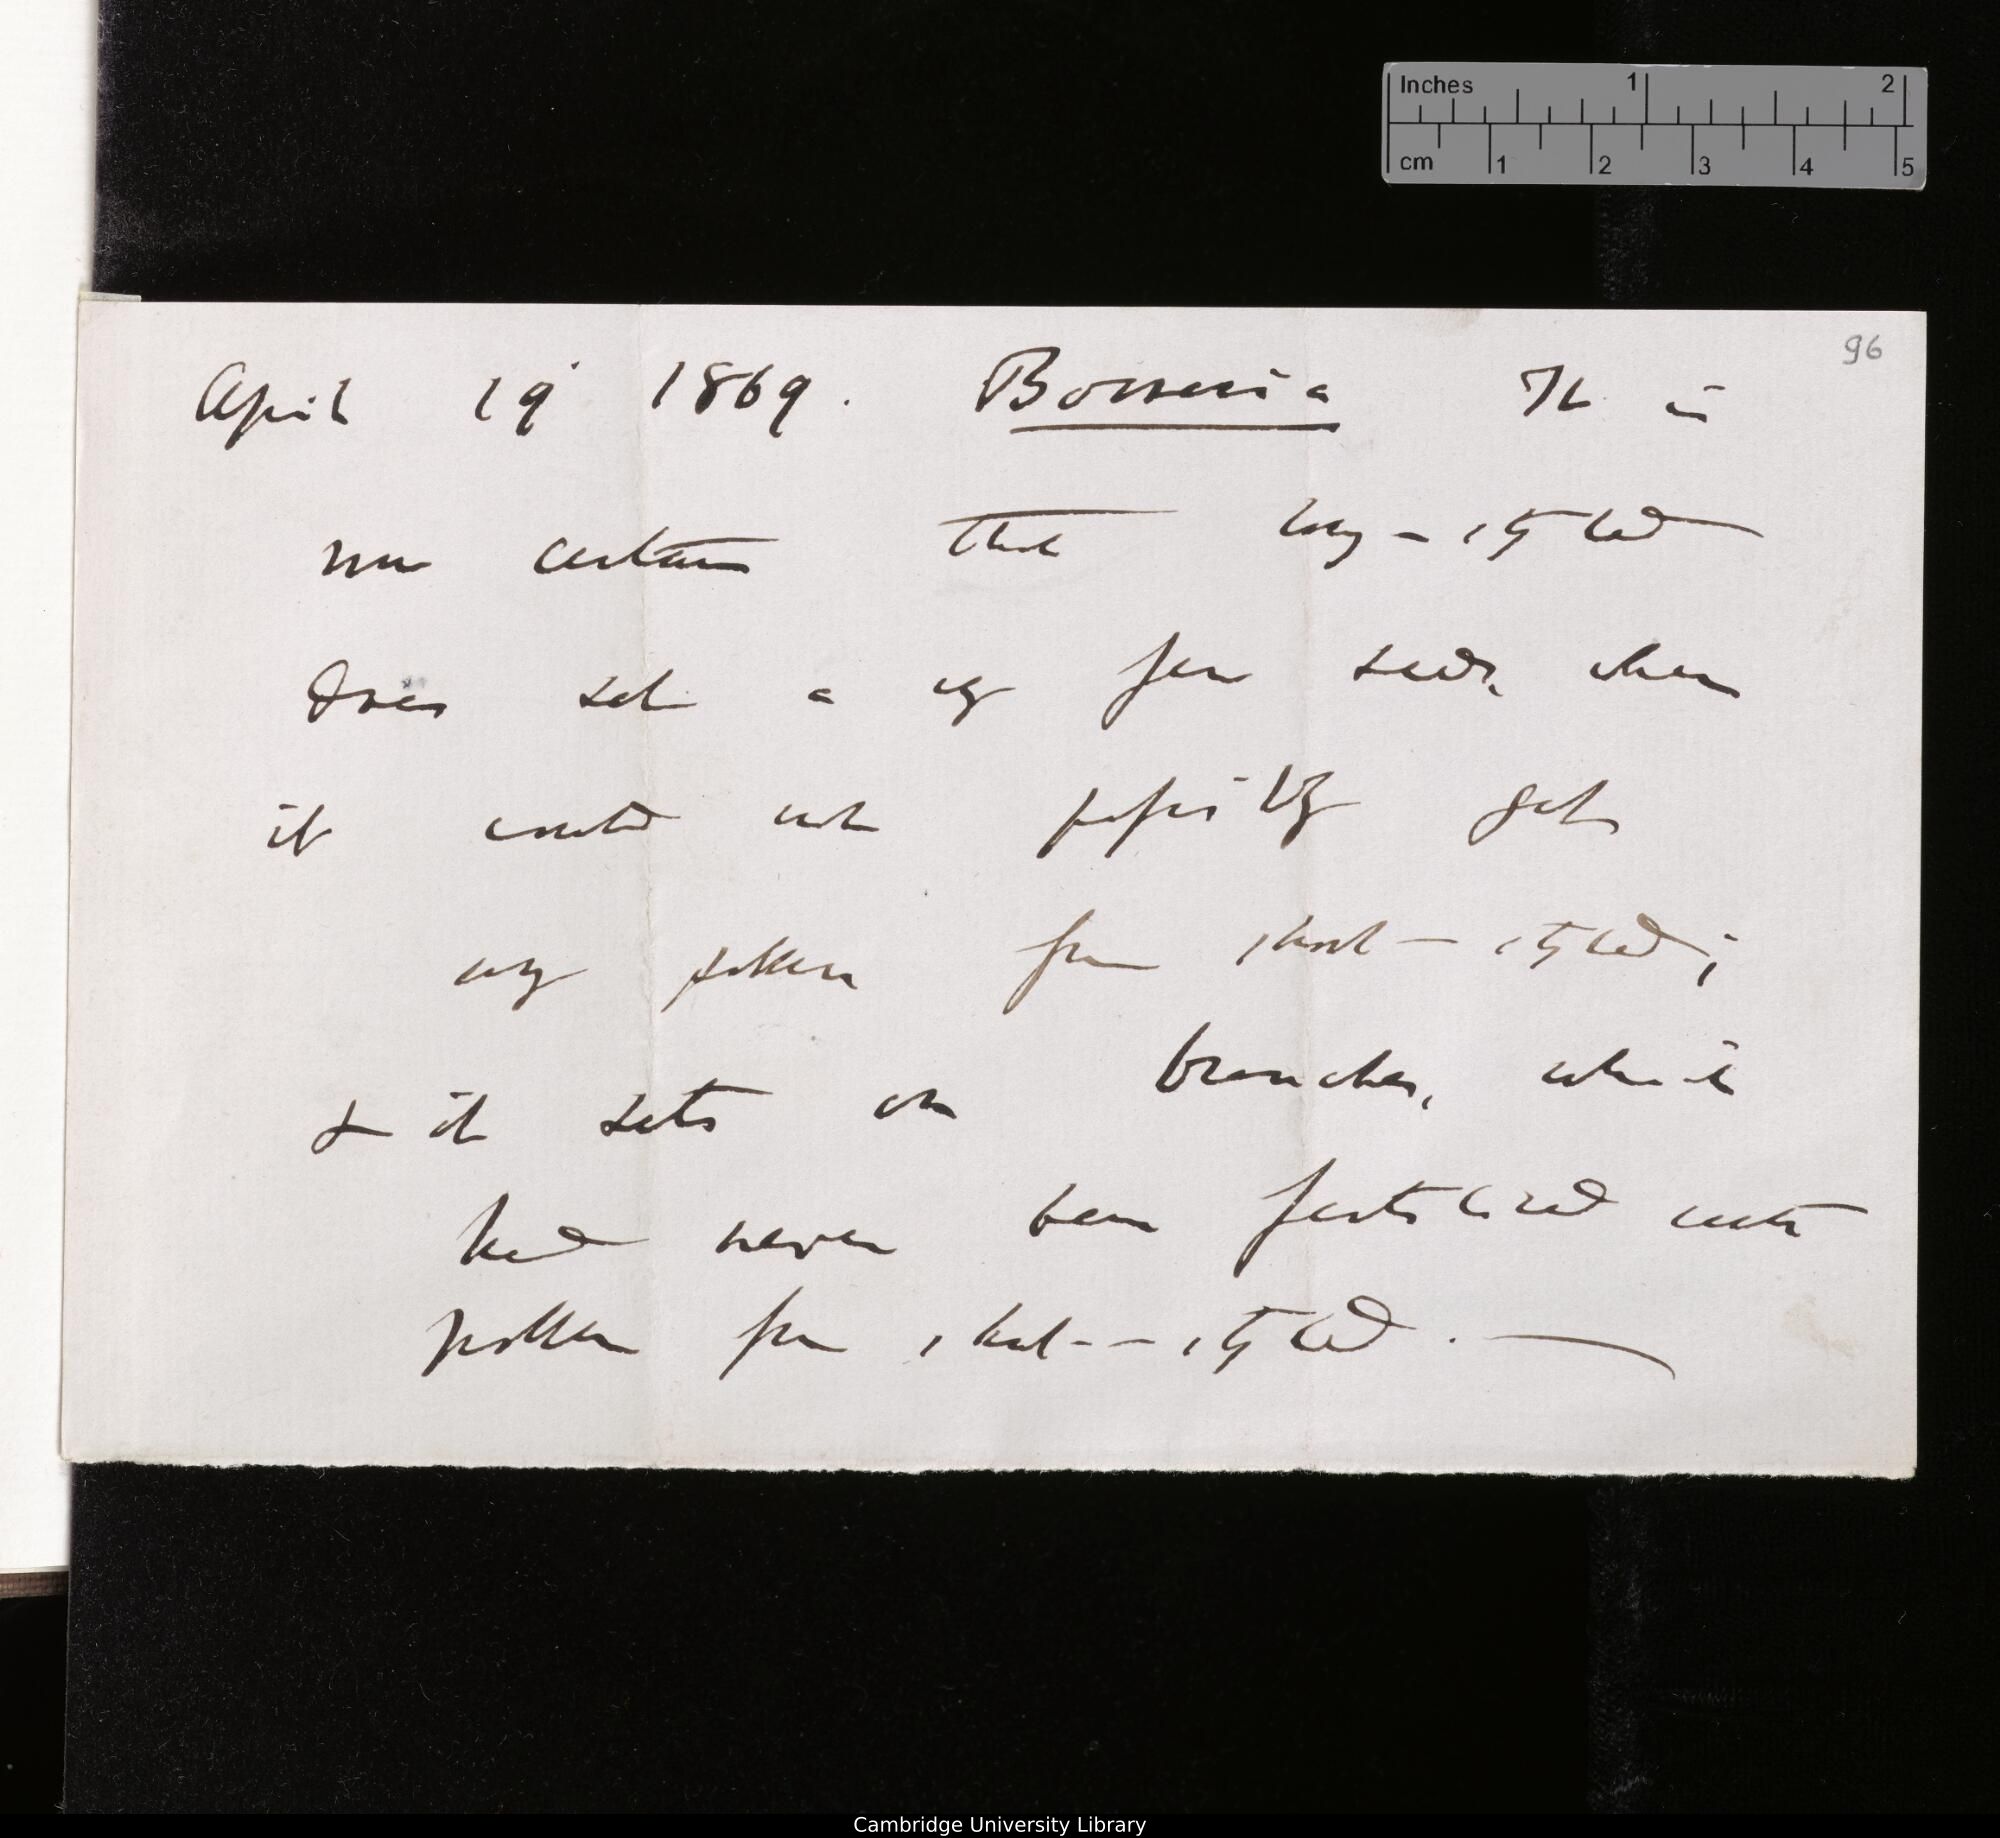 Inches 1 2
cm 1 2 3 4 5
96
April 19 1869. Borreria It is
now certain that long-styled
does set a very few seeds, when
it could not possibly get
any pollen from short-styled;
& it sets on branches, which
had never been fertilized with
pollen from short-styled.—
Cambridge University Library